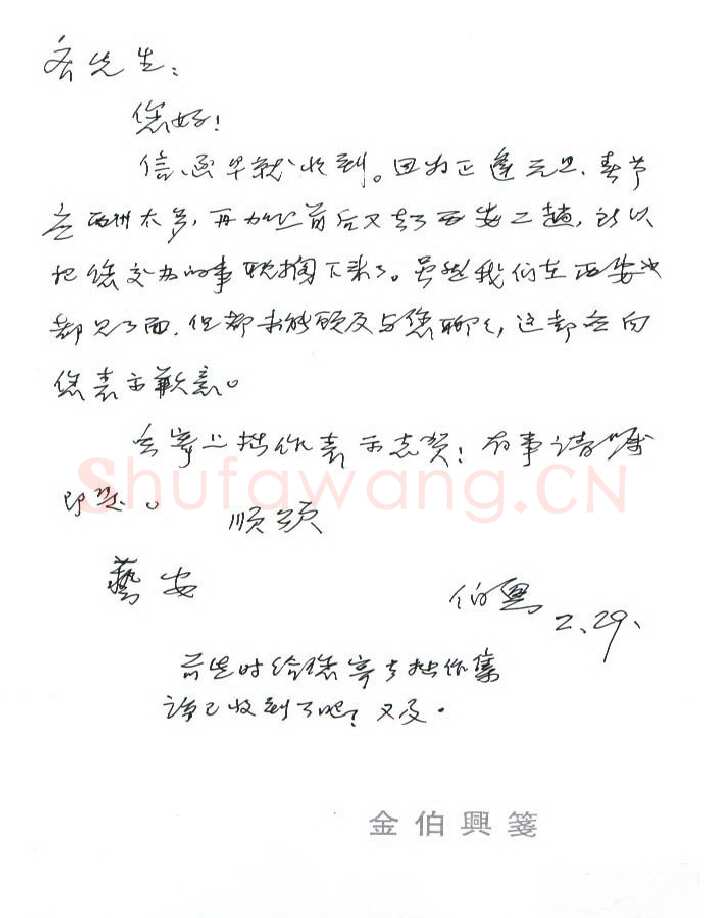 先生：
您好！
信函早就收到。因为正逢元旦、春节
应酬太多，再加上前后又去了西安二趟，所以
把您交办的事耽搁下来了。虽然我们在西安也
都见了面，但都未能顾及与您聊聊，这都应向
您表示歉意。
寄上拙作表示志贺！有事请嘱
即是。
顺颂
艺安
伯兴
2.29.
前些时给您寄去拙作集
谅已收到了吧？又及.
金伯興箋
Shufawang.CN